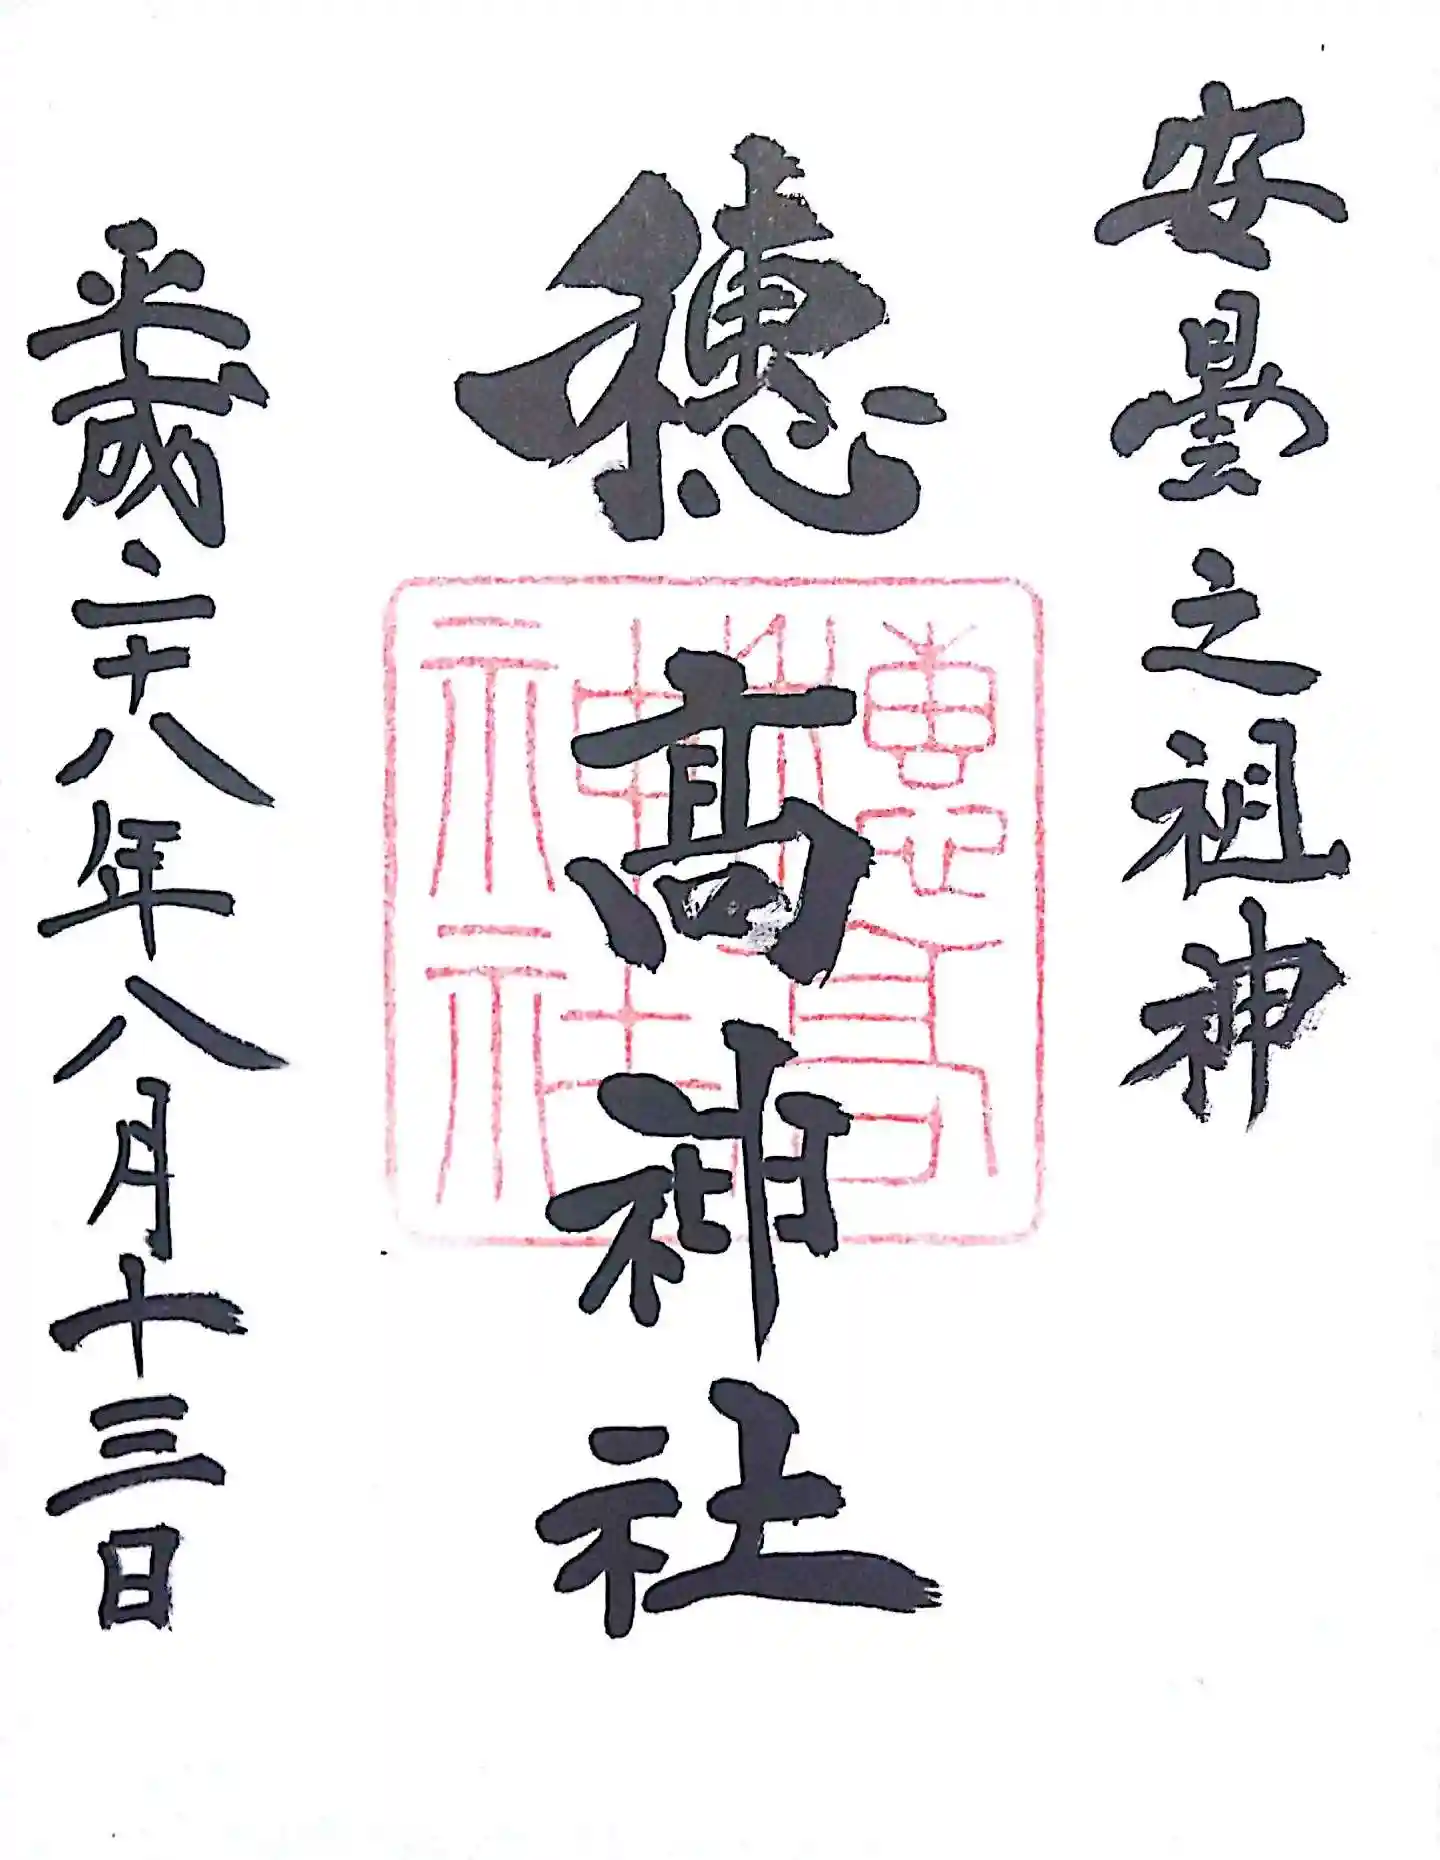 安曇之祖神
穂髙神社
平成二十八年八月十三日
穂髙神社